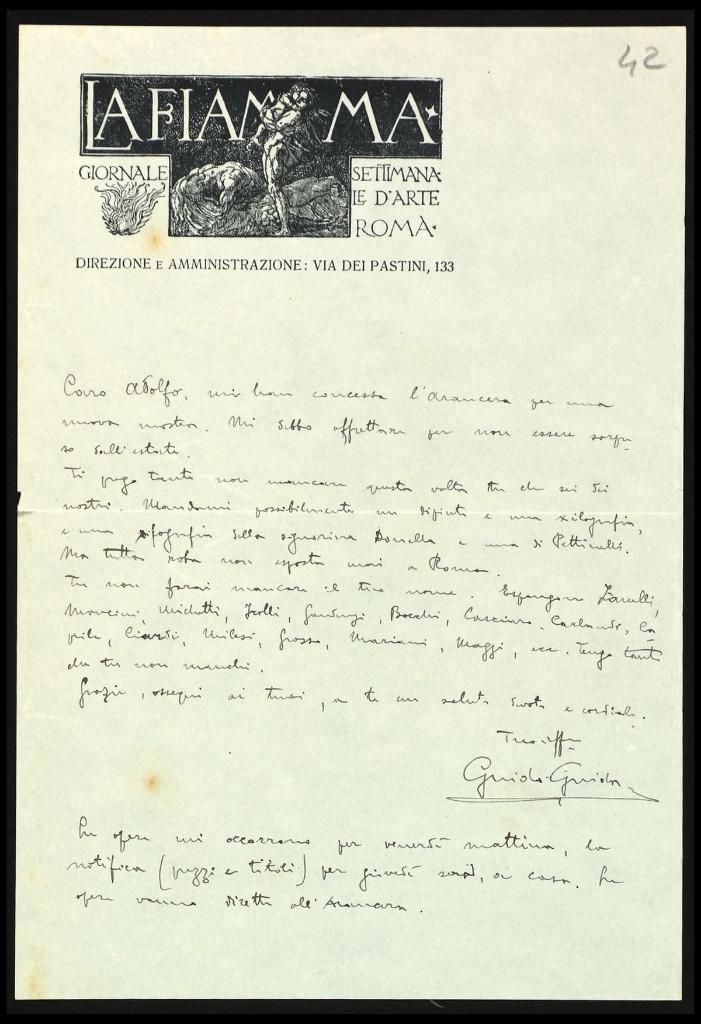 42
LA FIAMMA
GIORNALE SETTIMANA
LE D'ARTE
ROMA
DIREZIONE E AMMINISTRAZIONE: VIA DEI PASTINI, 133
Caro Adolfo, mi han concessa l'Arancera per una
nuova mostra. Mi debbo affrettare per non essere sorpre
so dall'estate.
Ti prego tanto non mancare questa volta tu che sei dei
nostri. Mandami possibilmente un dipinto e una xilografia,
e una xilografia della signorina Donnella e una di Petticelli.
Ma tutta roba non esposta mai a Roma.
Tu non farai mancare il tuo nome. Espongono Zanelli,
Mancini, Michetti, Jerlli, Gaudenzi, Bocchi, Casciaro, Carlandi, Ca
pile, Ciardi, Milesi, Grosso, Mariani, Maggi, ecc. Tengo tanto
che tu non manchi.
Grazie, ossequi ai tuoi, a te un saluto devoto e cordiale.
Tuo aff
Guido Guida
Le opere mi occorrono per venerdì mattina, la
notifica (prezzi e titoli) per giovedì sera, a casa. Le
opere vanno dirette all'Arancera.